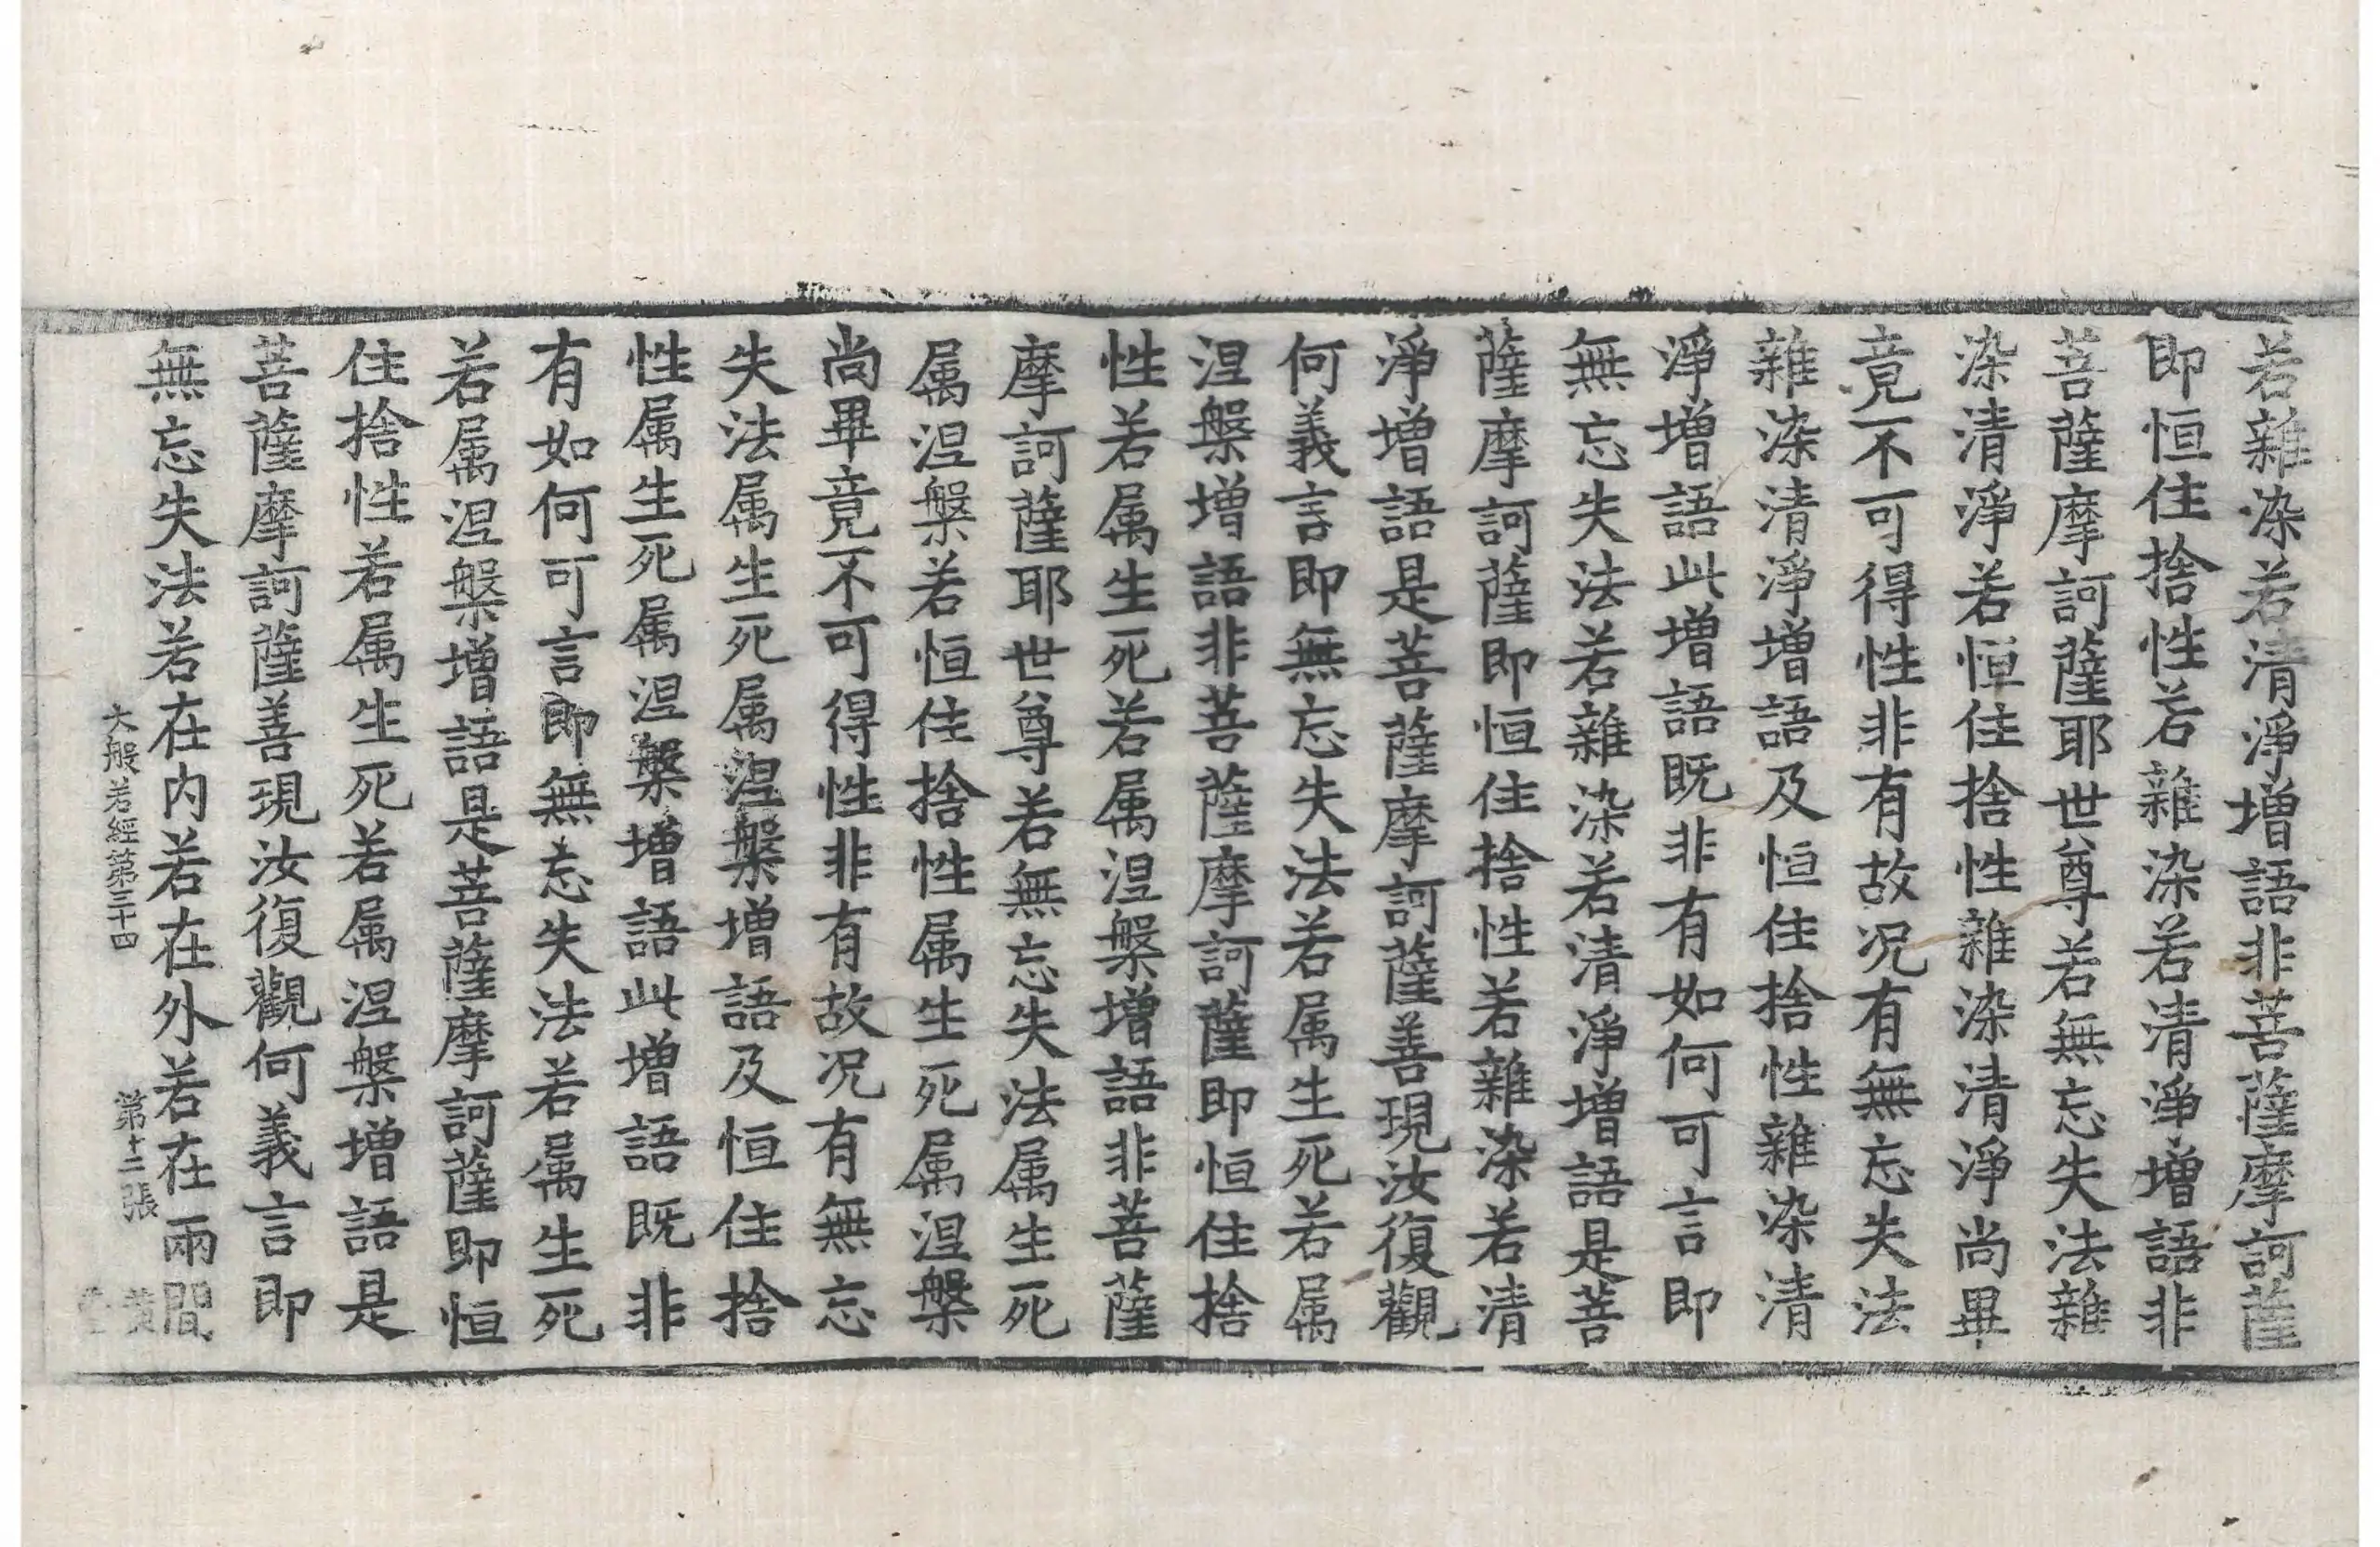 若雜染若清淨增語非菩薩摩訶薩
即恒住捨性若雜染若清淨增語非
菩薩摩訶薩耶世尊若無忘失法雜
染清淨若恒住捨性雜染清淨尚畢
竟不可得性非有故况有無忘失法
雜染清淨增語及恒住捨性雜染清
淨增語此增語既非有如何可言即
無忘失法若雜染若清淨增語是菩
薩摩訶薩即恒住捨性若雜染若清
淨增語是菩薩摩訶薩善現汝復觀
何義言即無忘失法若属生死若属
涅槃增語非菩薩摩訶薩即恒住捨
性若属生死若属涅槃增語非菩薩
摩訶薩耶世尊若無忘失法属生死
属涅槃若恒住捨性属生死属涅槃
尚畢竟不可得性非有故况有無忘
失法属生死属涅槃增語及恒住捨
性属生死属涅槃增語此增語既非
有如何可言即無忘失法若属生死
若属涅槃增語是菩薩摩訶薩即恒
住捨性若属生死若属涅槃增語是
菩薩摩訶薩善現汝復觀何義言即
無忘失法若在內若在外若在兩間
大般若經第三十四 第十二張 黄